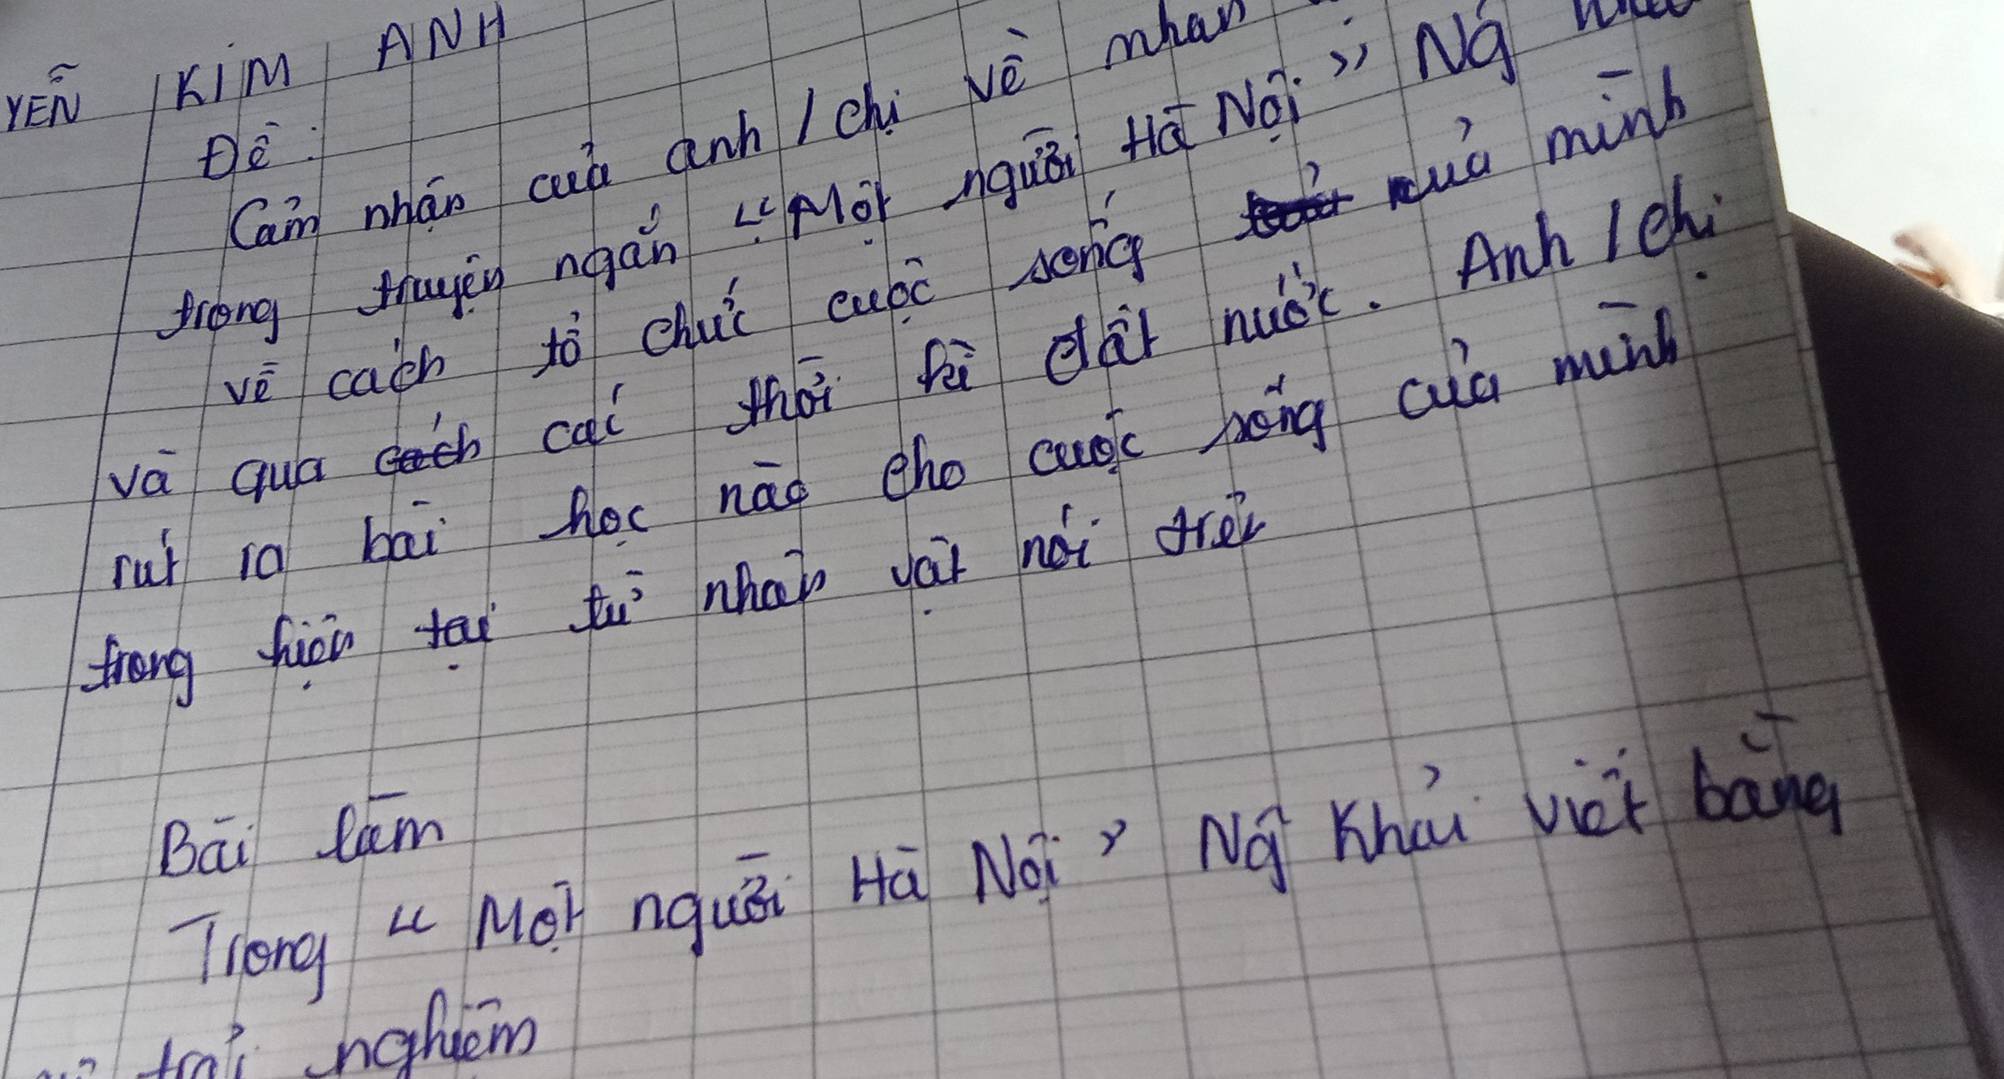 YẾN KIM ANH
Đề:
Cảm nhận của anh / chị về nhân
trong truyện ngắn "Một người Hà Nội" Ng
về cách tổ chức cuộc sống của mình
và qua các thời kì đất nước. Anh / chị
rút ra bài học nào cho cuộc sống của mình
trong hiện tại từ nhân vật nói trên
Bài làm
Trong "Một người Hà Nội" Ng Khải viết bằng
trải nghiệm